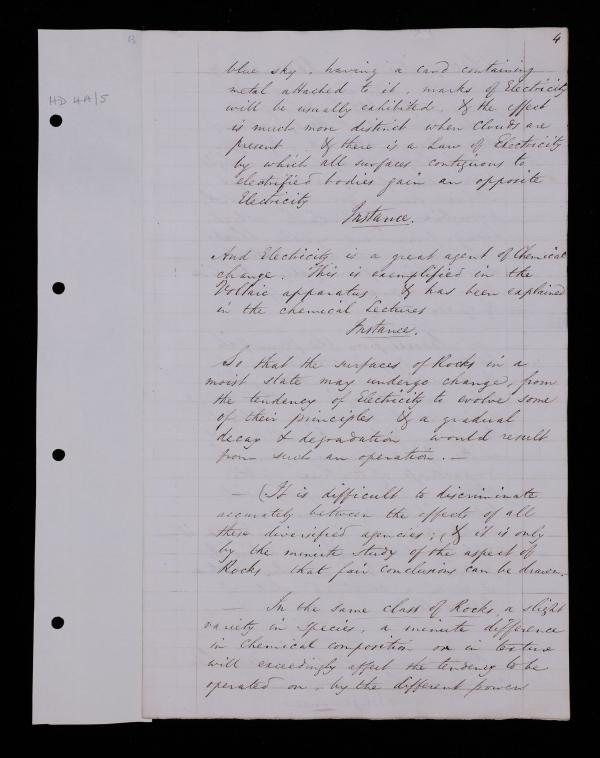 4
B
HD 4A/5
blue sky, having a card containing
metal attached to it, marks of Electricity
will be usually exhibited, & the effect
is much more distinct when Clouds are
present & there is a Law of Electricity
by which all surfaces contiguous to
electrified bodies gain an opposite
Electricity
Instance.
And Electricity is a great agent of Chemical
change. This is exemplified in the
Voltaic apparatus, & has been explained
in the chemical Lectures
Instance.
So that the surfaces of Rocks in a
moist state may undergo change, from
the tendency of Electricity to evolve some
of their principles & a gradual
decay & degradation would result
from such an operation. —
— (It is difficult to discriminate
accurately between the effects of all
these diversified agencies; (& it is only
by the minute study of the aspect of
Rocks, that fair conclusions can be drawn.
— In the same class of Rocks, a slight
variety in species, a minute difference
in Chemical composition or in texture
will exceedingly affect the tendency to be
operated on, by the different powers